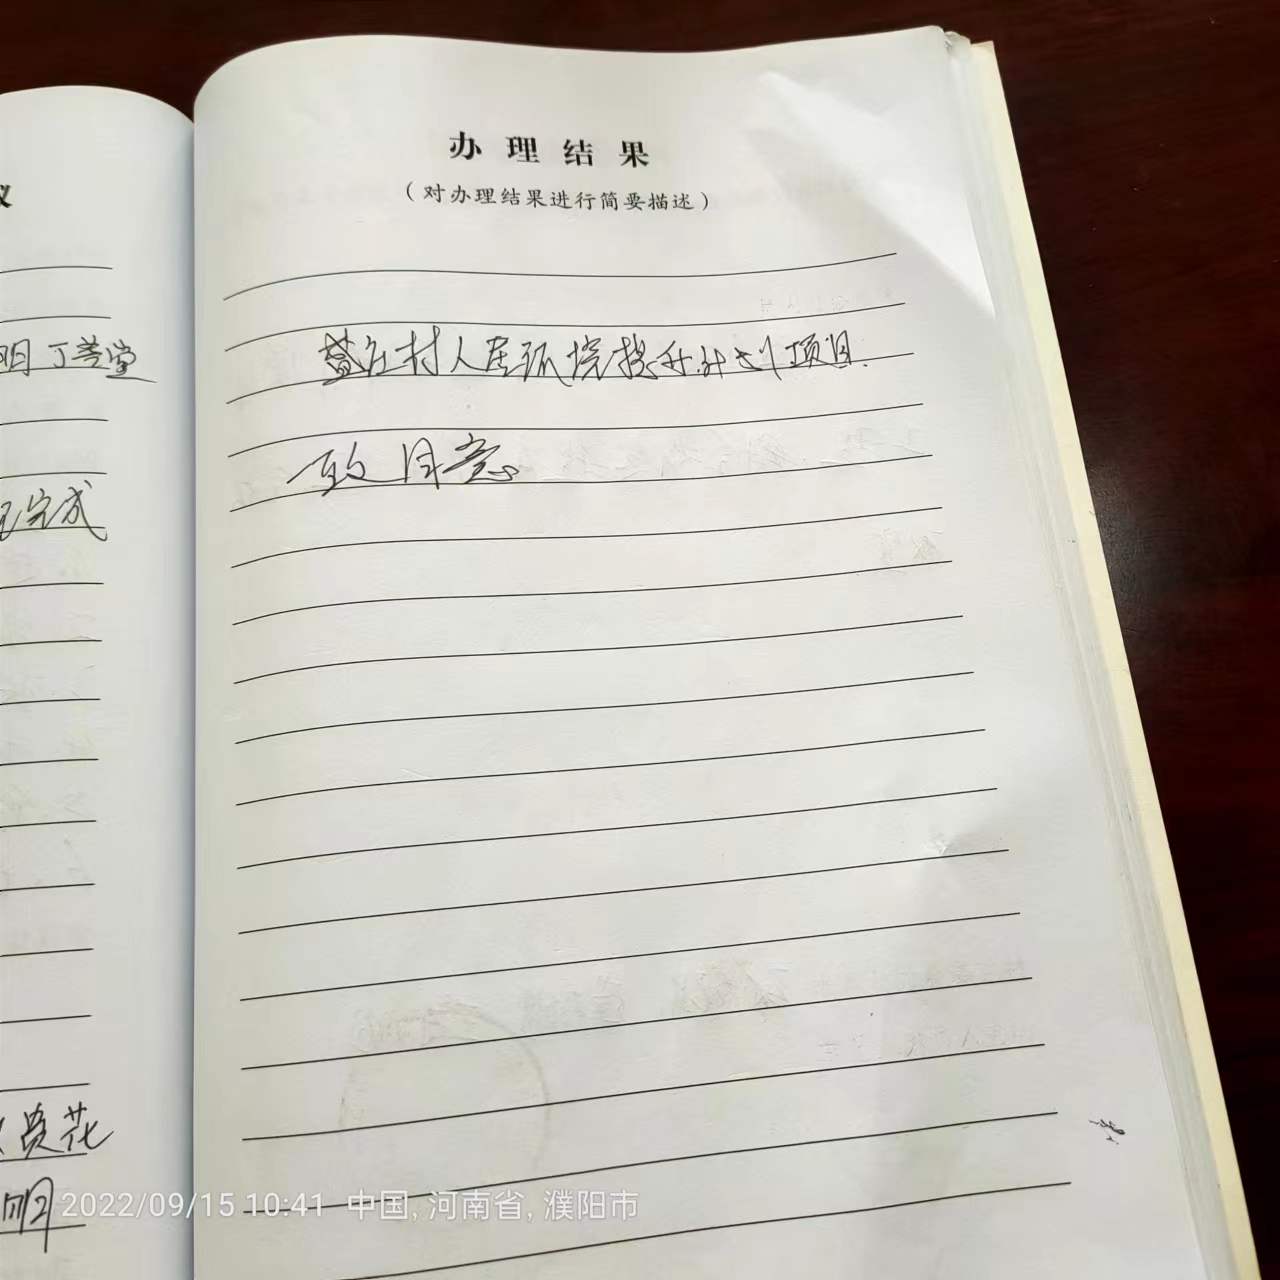 办理结果
（对办理结果进行简要描述）
庄村人居环境提升计划项目
一致同意
明 丁善堂
已完成
花
明
2022/09/15 10:41 中国, 河南省, 濮阳市